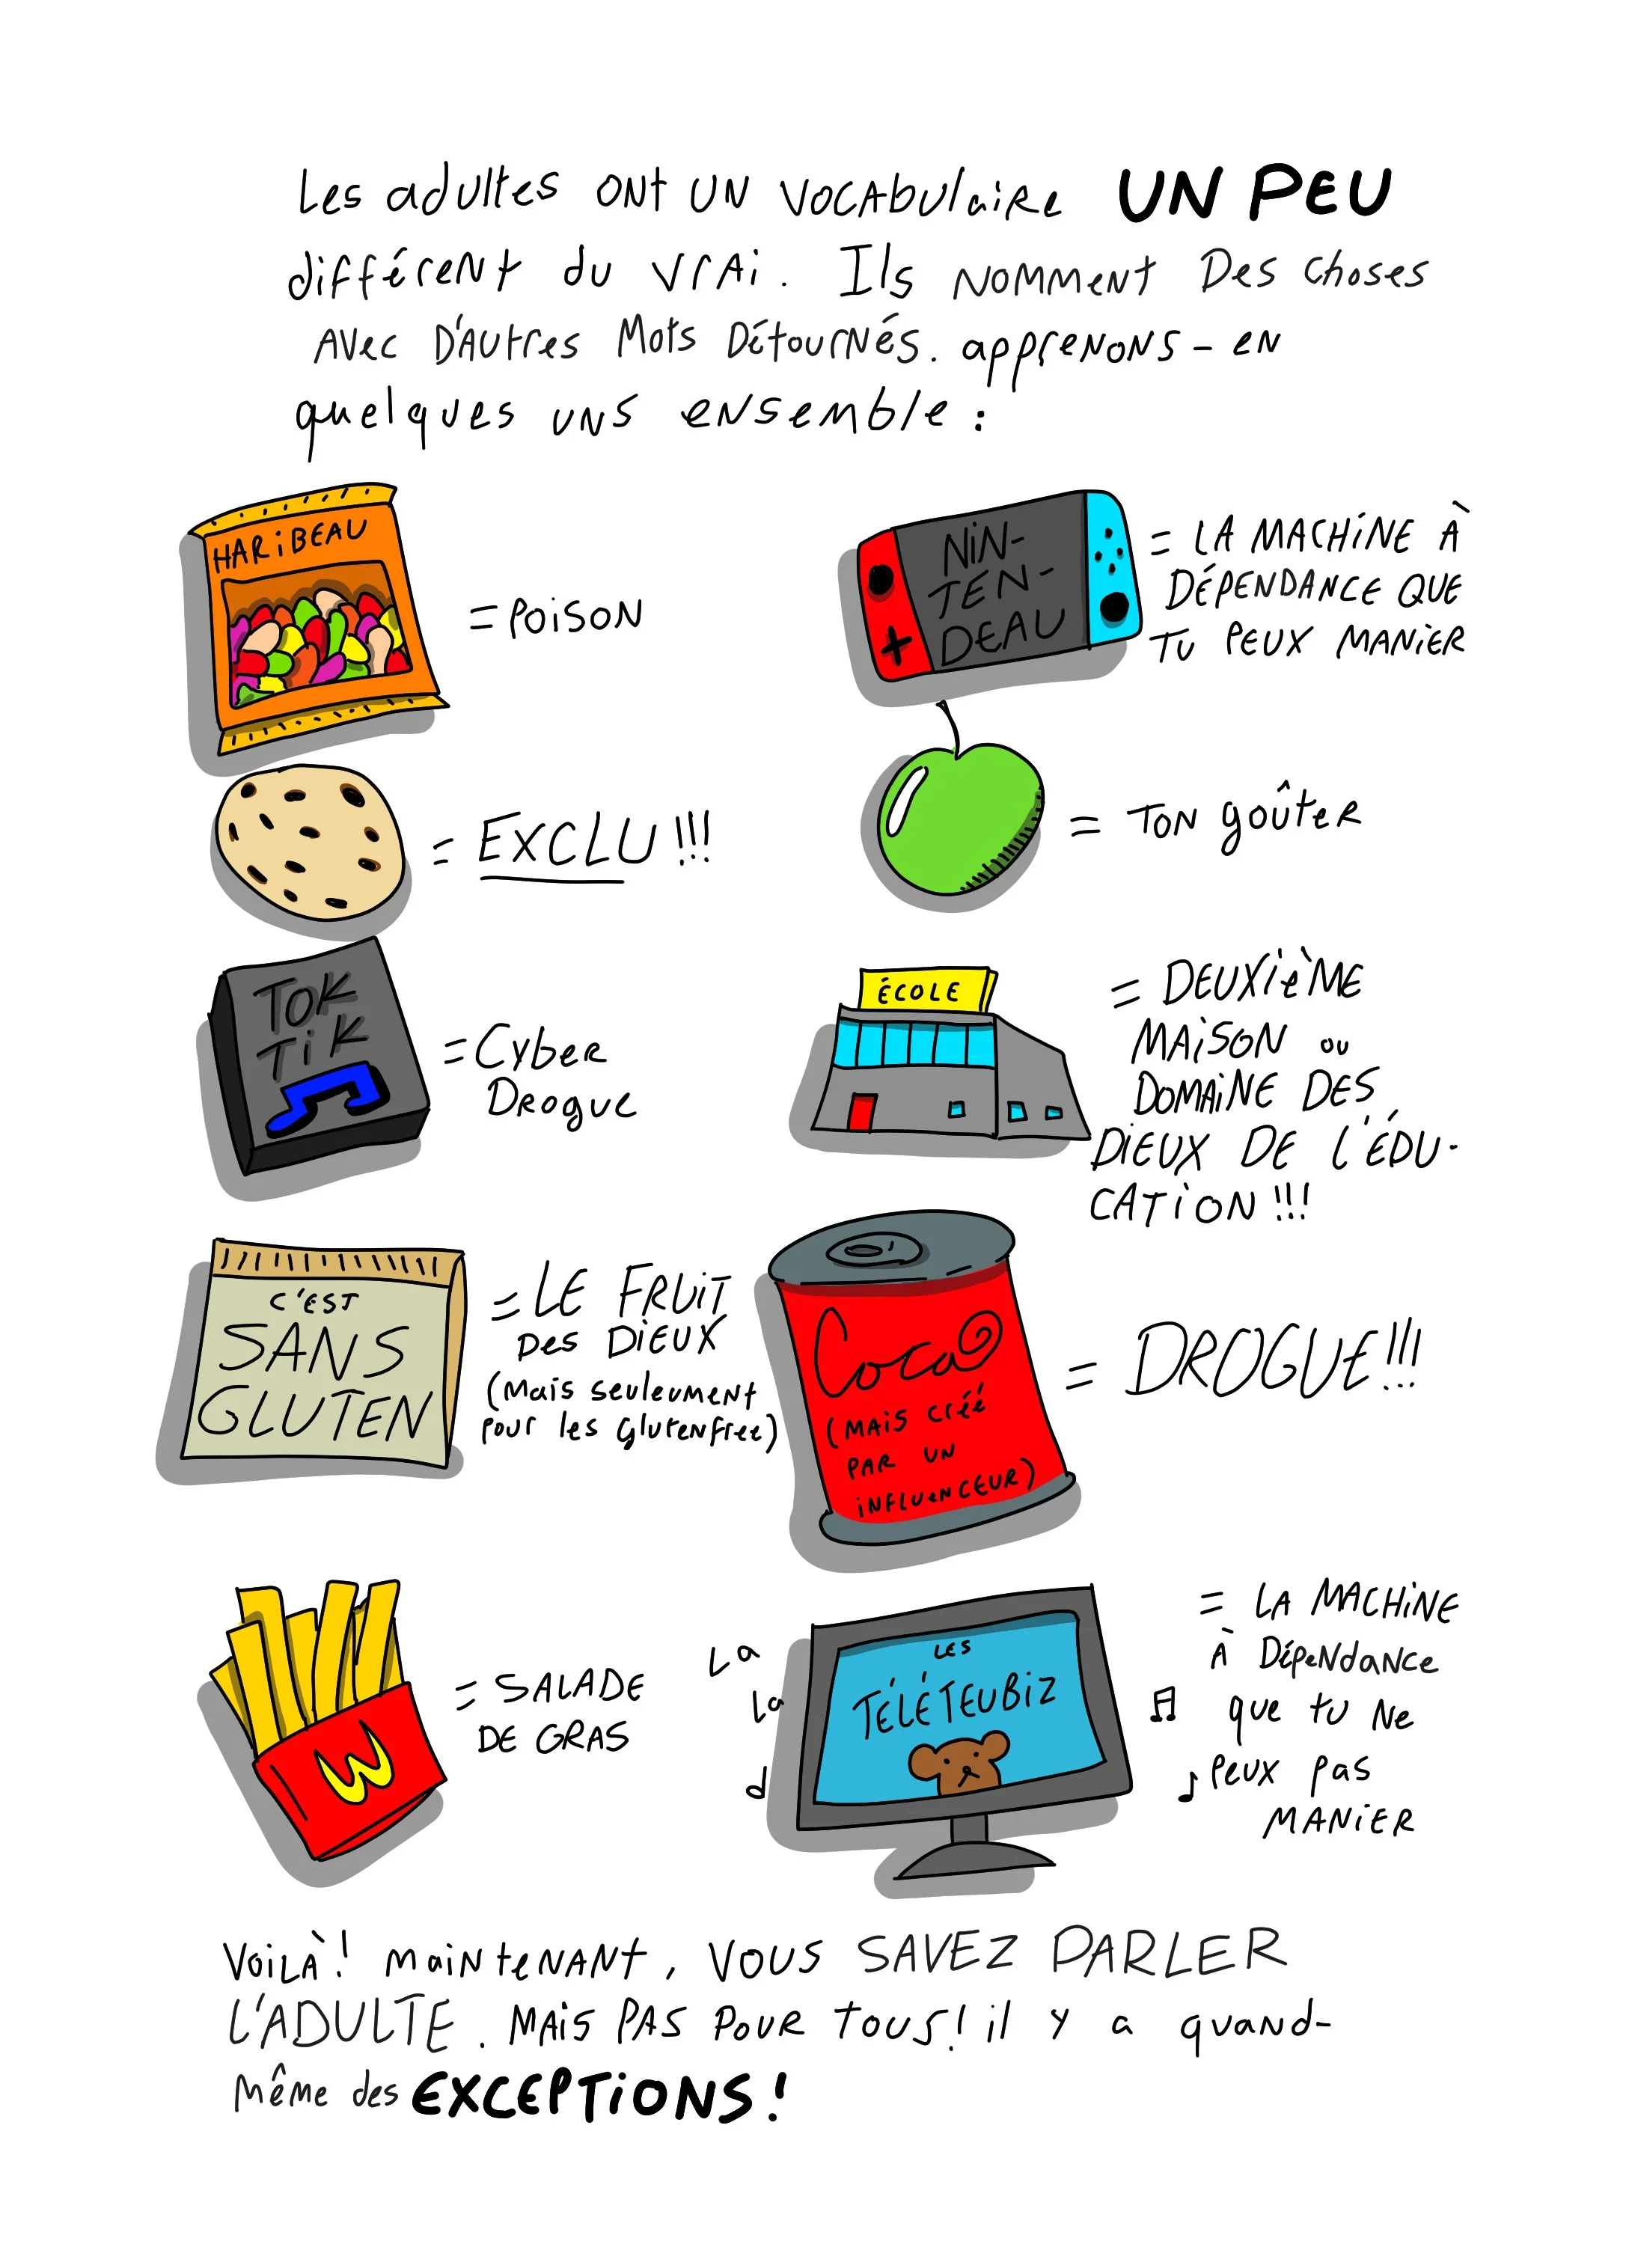 Les adultes ont un vocabulaire UN PEU
différent du vrai. Ils nomment des choses
avec d'autres mots détournés. apprenons-en
quelques uns ensemble :
HARIBEAU
= POISON
NIN-
TEN-
DEAU
= LA MACHINE À
DÉPENDANCE QUE
TU PEUX MANIER
= EXCLU !!!
= TON goûter
TOK
TIK
= Cyber
Drogue
ÉCOLE
= DEUXIèME
MAISON ou
DOMAINE DES
DIEUX DE L'ÉDU-
CATION !!!
C'EST
SANS
GLUTEN
= LE FRUIT
Des DIEUX
(Mais seuleument
pour les glutenfree)
Coca
(MAIS créé
PAR UN
iNFLUeNCEUR)
= DROGUE!!!
W
= SALADE
DE GRAS
La
la
LES
TÉLÉTEUBIZ
= LA MACHINE
À Dépendance
que tu Ne
peux pas
MANIER
Voilà! maintenant, VOUS SAVEZ PARLER
L'ADULTE. MAIS PAS POUR TOUS! il y a quand-
même des EXCEPTIONS!